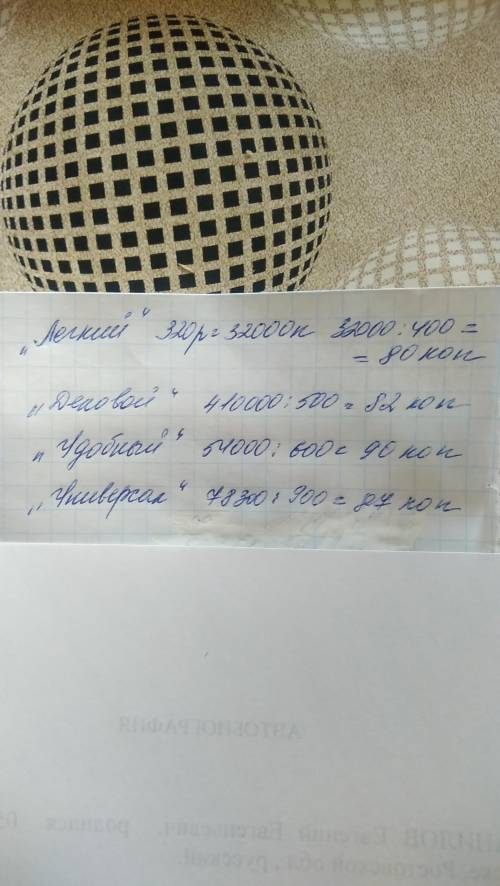 „Легкий“ 320р = 32000к 32000 : 400 =
= 80 коп
„Деловой“ 410000 : 500 = 82 коп
„Удобный“ 54000 : 600 = 90 коп
„Универсал“ 78300 : 900 = 87 коп
АВТОБИОГРАФИЯ
Евгений Евгеньевич, родился
Ростовской обл., русский.